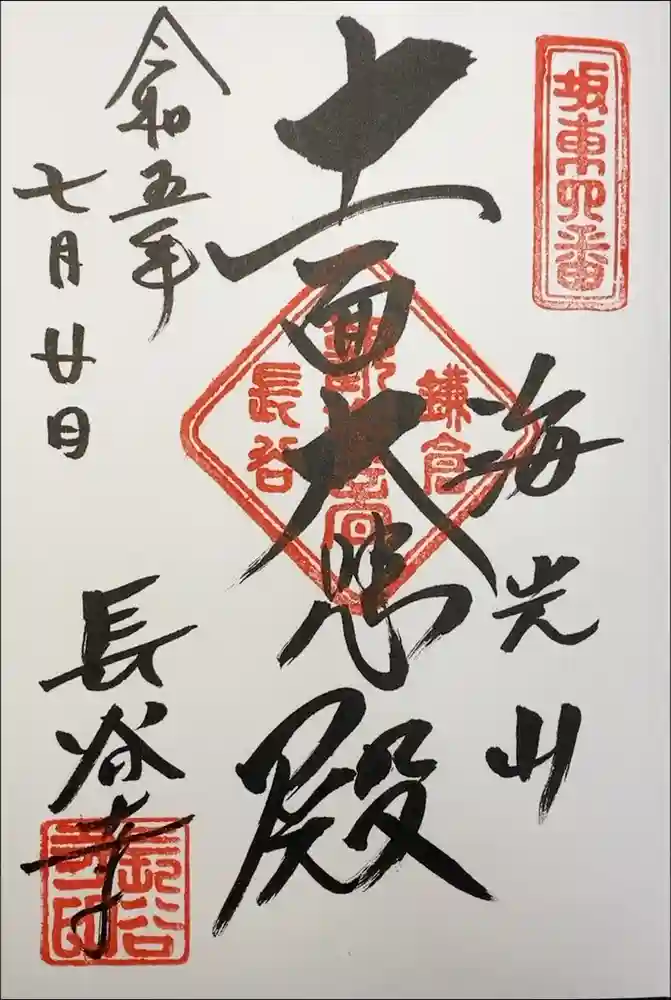 坂東四番
海光山
鎌倉
十一面大悲殿
長谷
令和五年
七月廿日
長谷寺
長谷
寺印